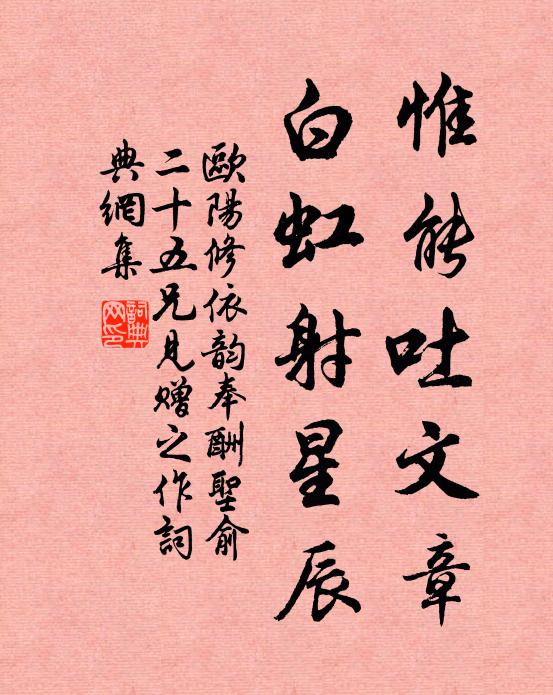 惟能吐文章
白虹射星辰
歐陽修依韵奉酬聖俞
二十五兄見贈之作詞
典網集
詞典
网印